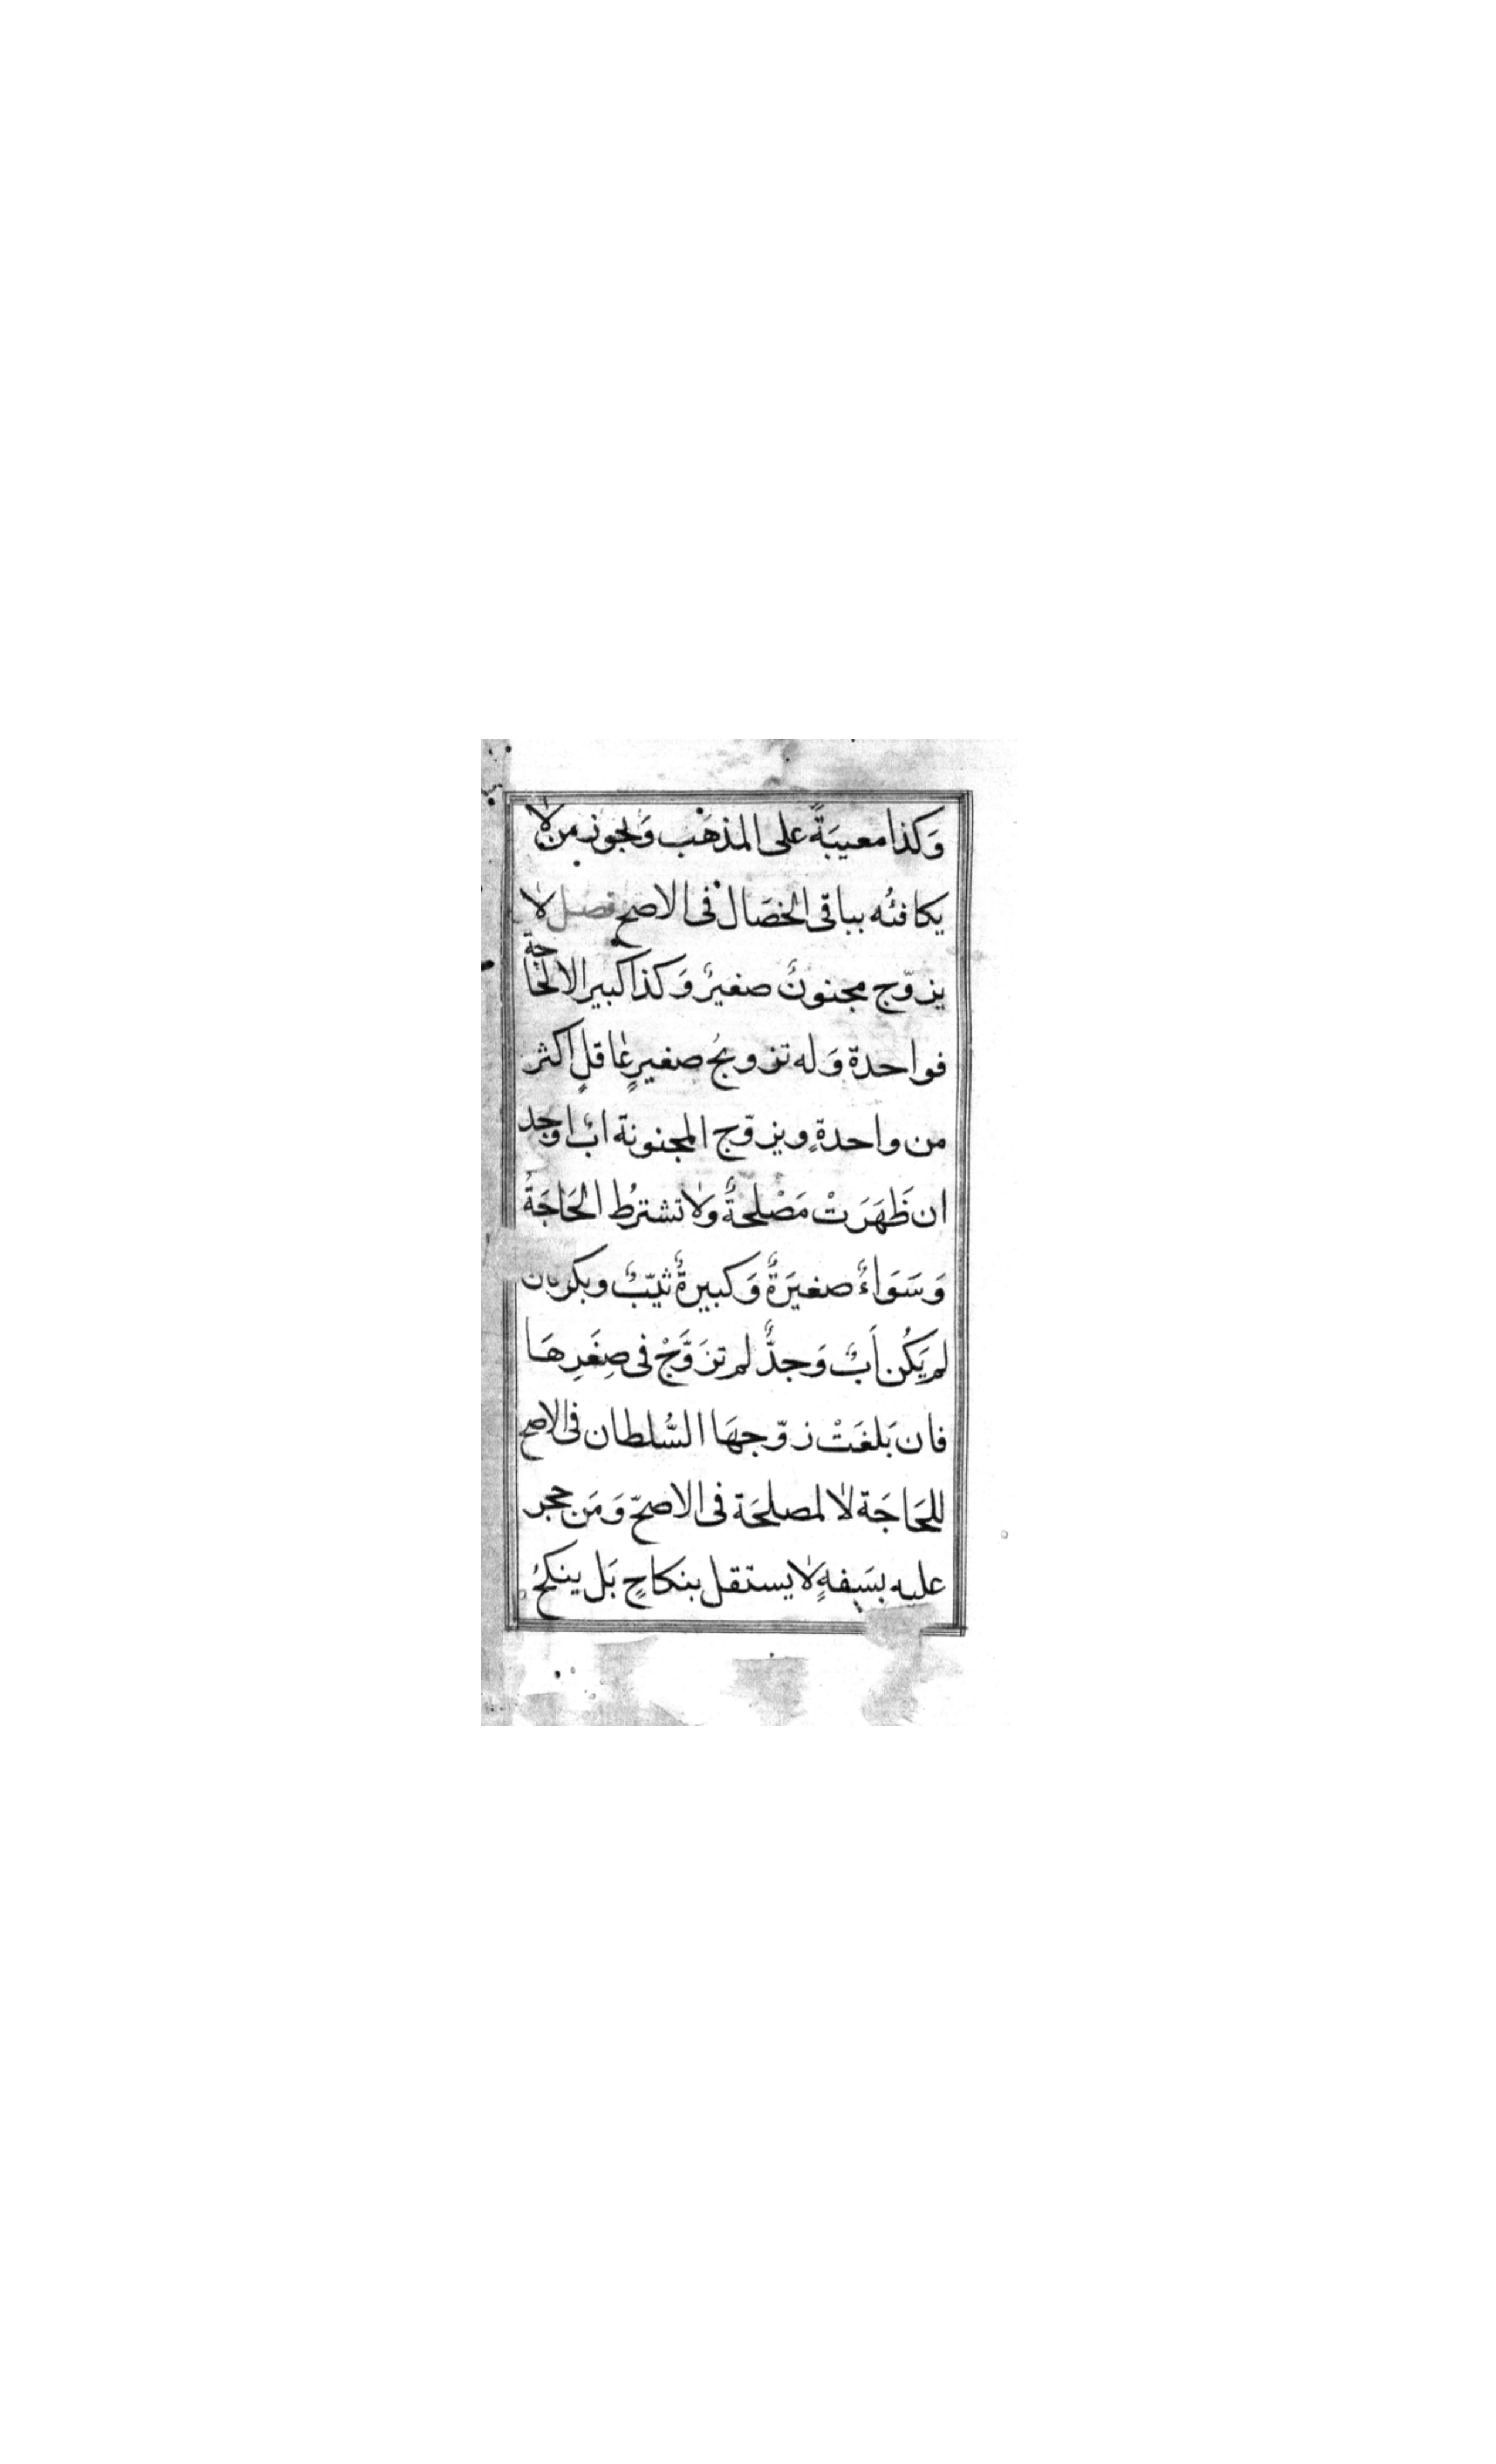 وَكذا معيبَةً على المذهَب وَيجوز من لا
يكافئُه بباقى الخصَال فى الاصح فصل لا
يزوّج مجنونٌ صغيرٌ وَكذا كبير الا لحاجة
فواحدة وَله تزويجُ صغيرٍ عاقلٍ اكثر
من واحدةٍ ويزوّج المجنونة ابٌ اوجد
ان ظَهَرَتْ مَصْلحةٌ ولا تشترطُ الحَاجَةُ
وَسَوَاءٌ صغيرَةٌ وَكبيرةٌ ثيّبٌ وبكر فان
لم يَكُن أَبٌ وَجدٌّ لم تزَوَّجْ فى صِغَرِهَا
فان بَلغَتْ زوّجهَا السُّلطان فى الاصح
للحَاجَة لا لمصلحَة فى الاصحّ وَمَن حجر
عليه بسَفهٍ لا يستقل بنكاحٍ بَل ينكحُ